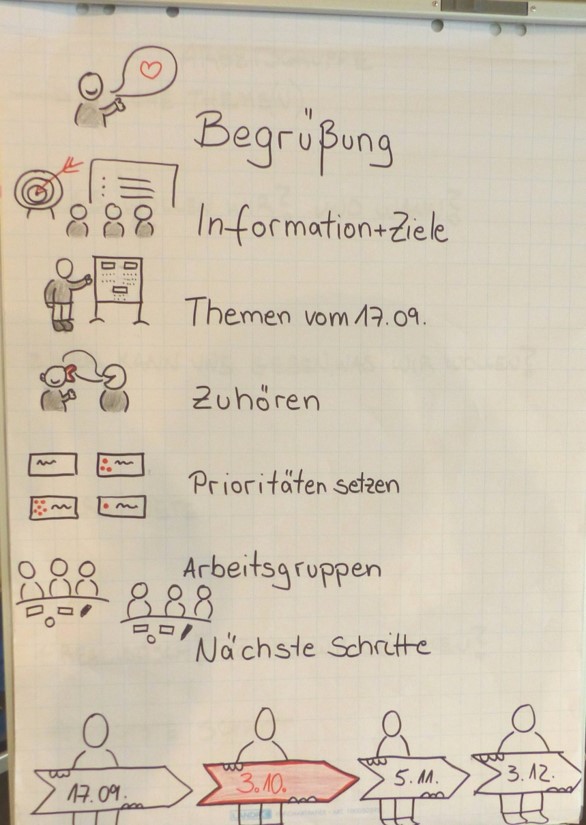 Begrüßung
Information+Ziele
Themen vom 17.09.
Zuhören
Prioritäten setzen
Arbeitsgruppen
Nächste Schritte
17.09. 3.10. 5.11. 3.12.